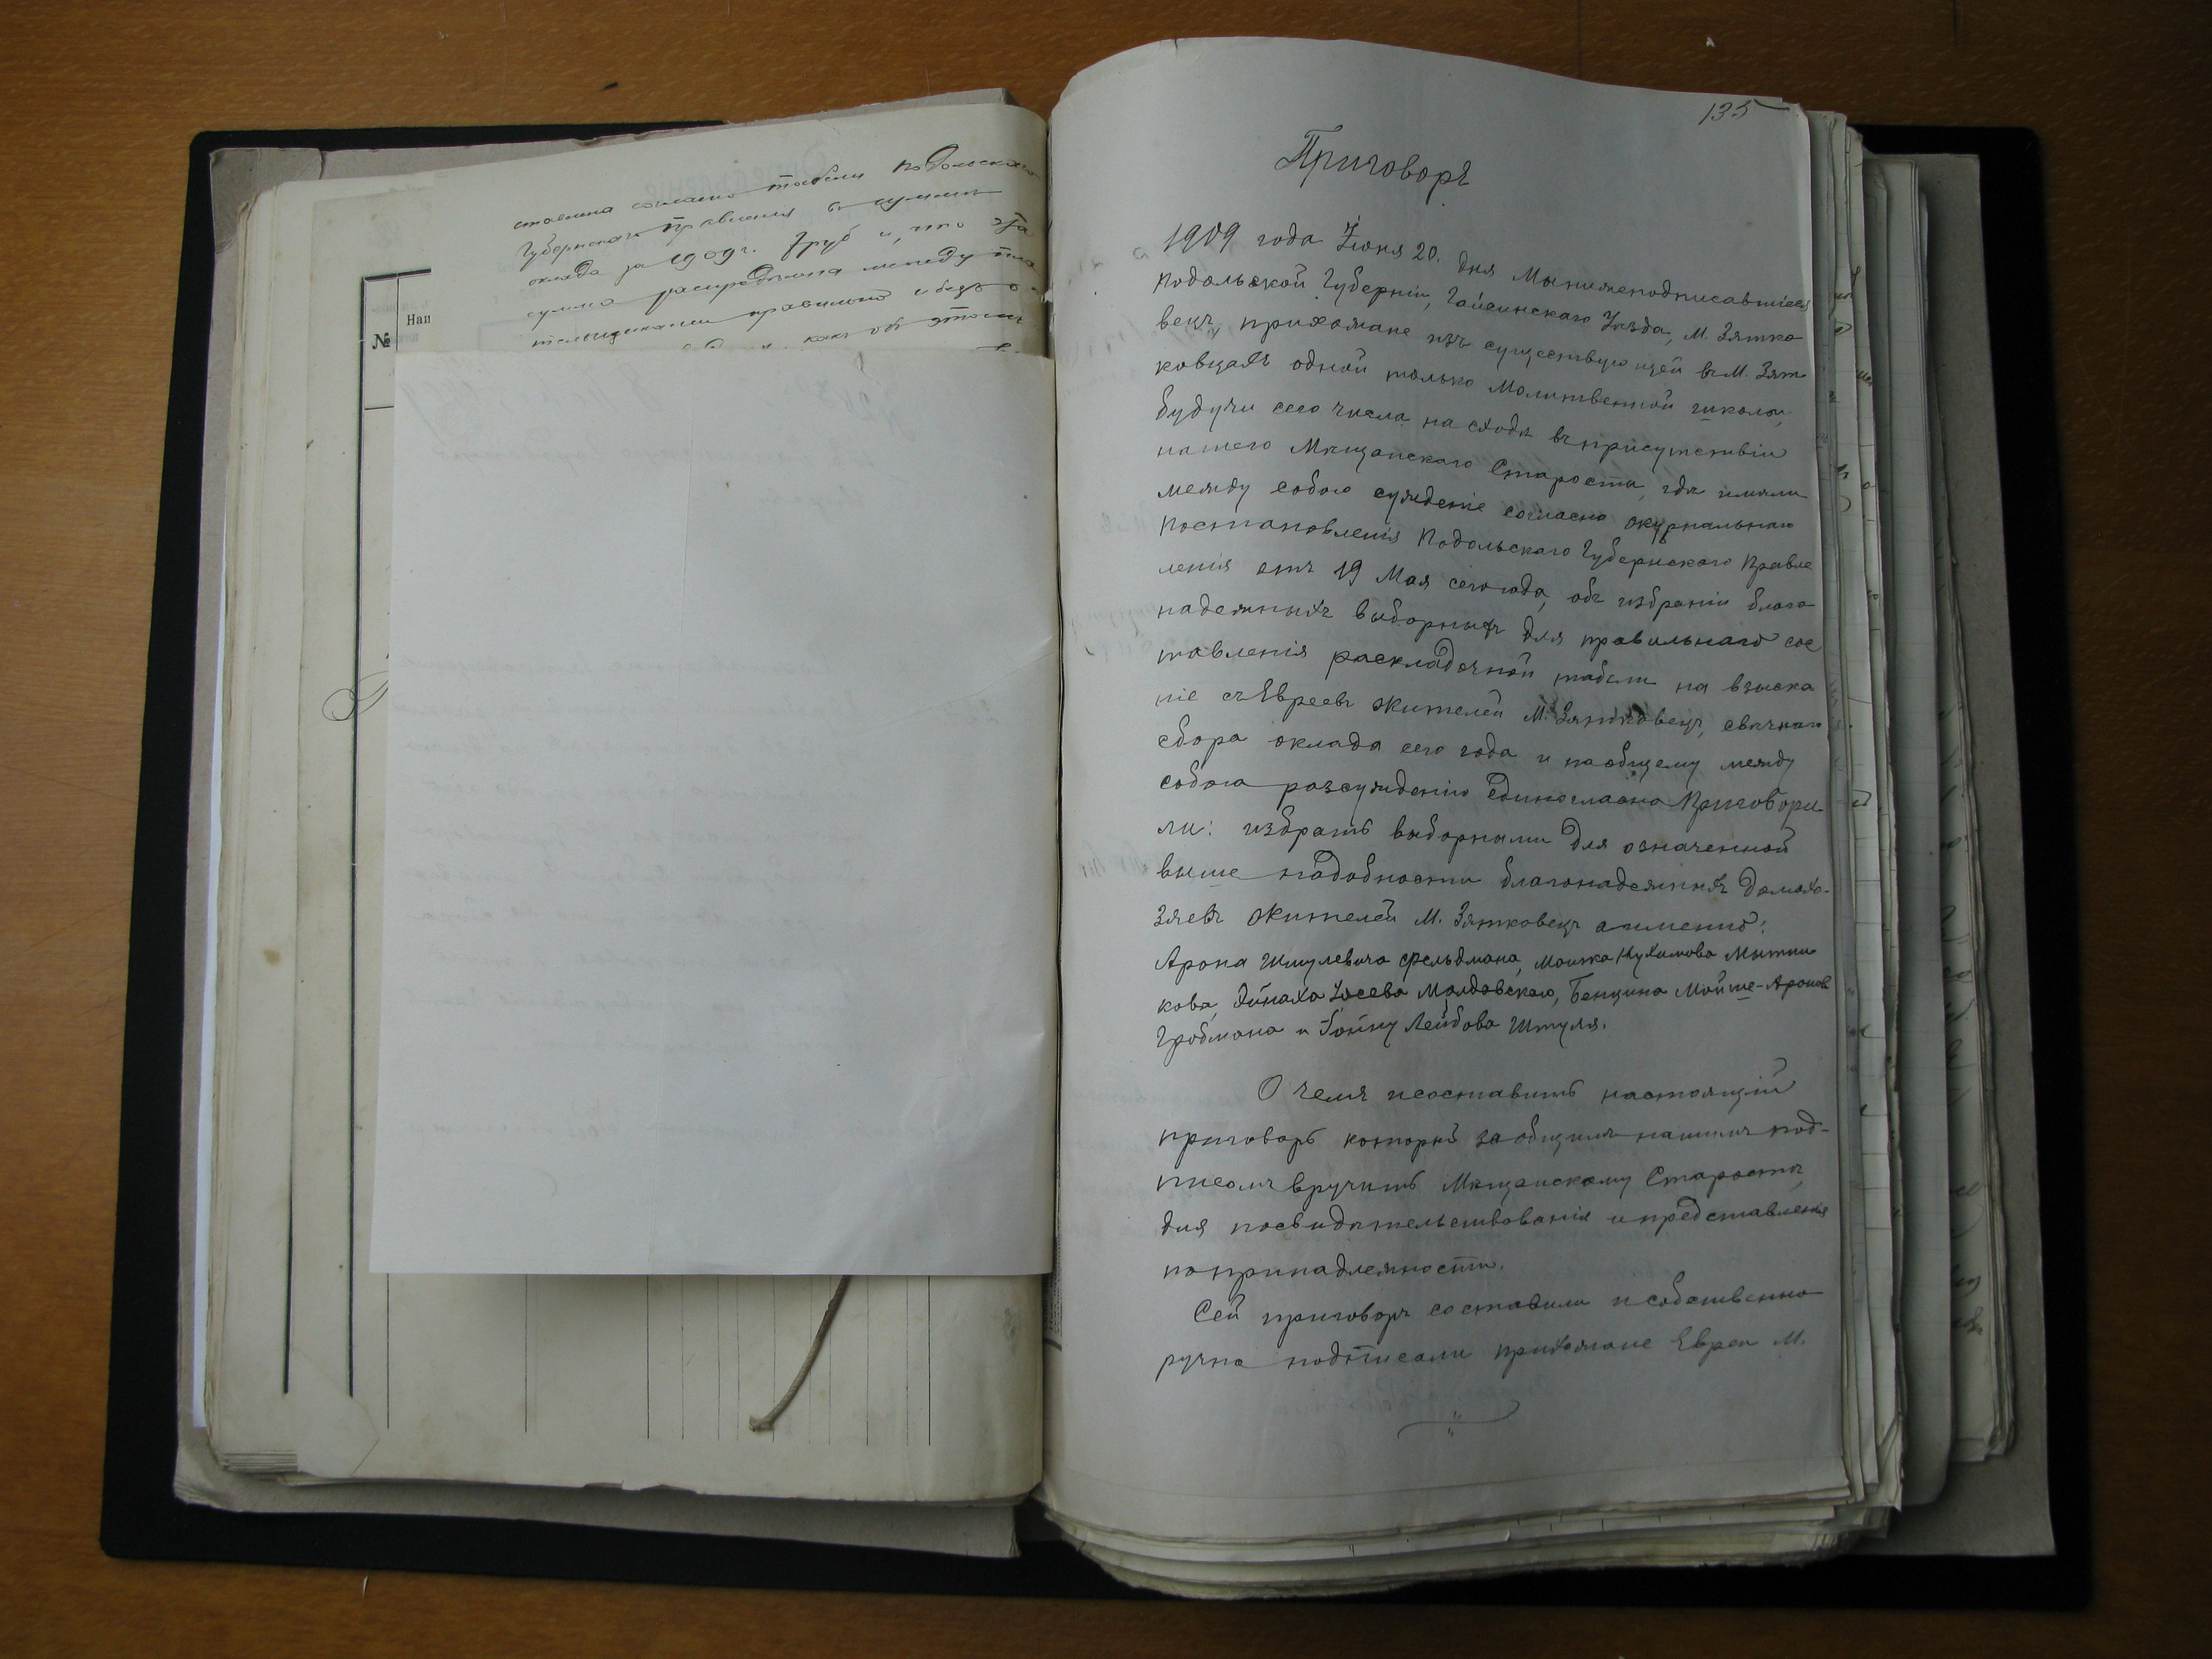 ставлена согласно табели Подольскаго
Губернскаго Правленія въ суммѣ
оклада за 1909 г. 7 руб и, что эта
сумма распредѣлена между пла
тельщиками правильно и безъ о
какъ объ этомъ
№
Наи
135
Приговоръ
1909 года Іюня 20. дня Мы нижеподписавшіеся
Подольской Губерніи, Гайсинскаго Уѣзда, М. Зятко
вецъ, прихожане изъ существующей въ М. Зят
ковцахъ одной только Молитвенной школы,
будучи сего числа на сходѣ въ присутствіи
нашего Мѣщанскаго Старосты, гдѣ имѣли
между собою сужденіе согласно журнальнаго
постановленія Подольскаго Губернскаго Правле
ленія отъ 19 Мая сего года, объ избраніи благо
надежныхъ выборныхъ для правильнаго сос
тавленія раскладочной табели на взыска
ніе съ Евреевъ жителей М. Зятковецъ, свѣчнаго
сбора оклада сего года и по общему между
собою разсужденію единогласно Приговори
ли: избрать выборными для означенной
выше надобности благонадежныхъ домохо-
зяевъ жителей М. Зятковецъ а именно:
Арона Шмулевича Фельдмана, Мошка Нухимова Мытни
кова, Айнаха Іосева Молдавскаго, Бенциона Мойше-Аронов
Гробмана и Гойну Лейбова Штуля.
О чемъ и составить настоящій
приговоръ который за общимъ нашимъ под-
писомъ вручить Мѣщанскому Старостѣ,
для посвидѣтельствованія и представленія
по принадлежности.
Сей приговоръ составили и собственно
ручно подписали прихожане Евреи М.